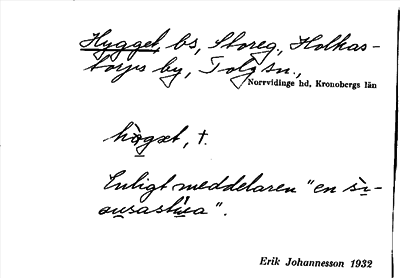 Hygget, bs, Storeg., Holkas-
torps by, Tolg sn.,
Norrvidinge hd, Kronobergs län
hògət, t.
Enligt meddelaren "en
Erik Johannesson 1932